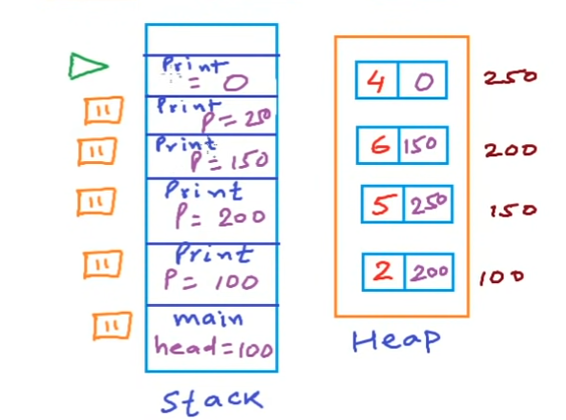 Print
= 0
Print
P = 250
Print
P = 150
Print
P = 200
Print
P = 100
main
head = 100
Stack
4 0 250
6 150 200
5 250 150
2 200 100
Heap